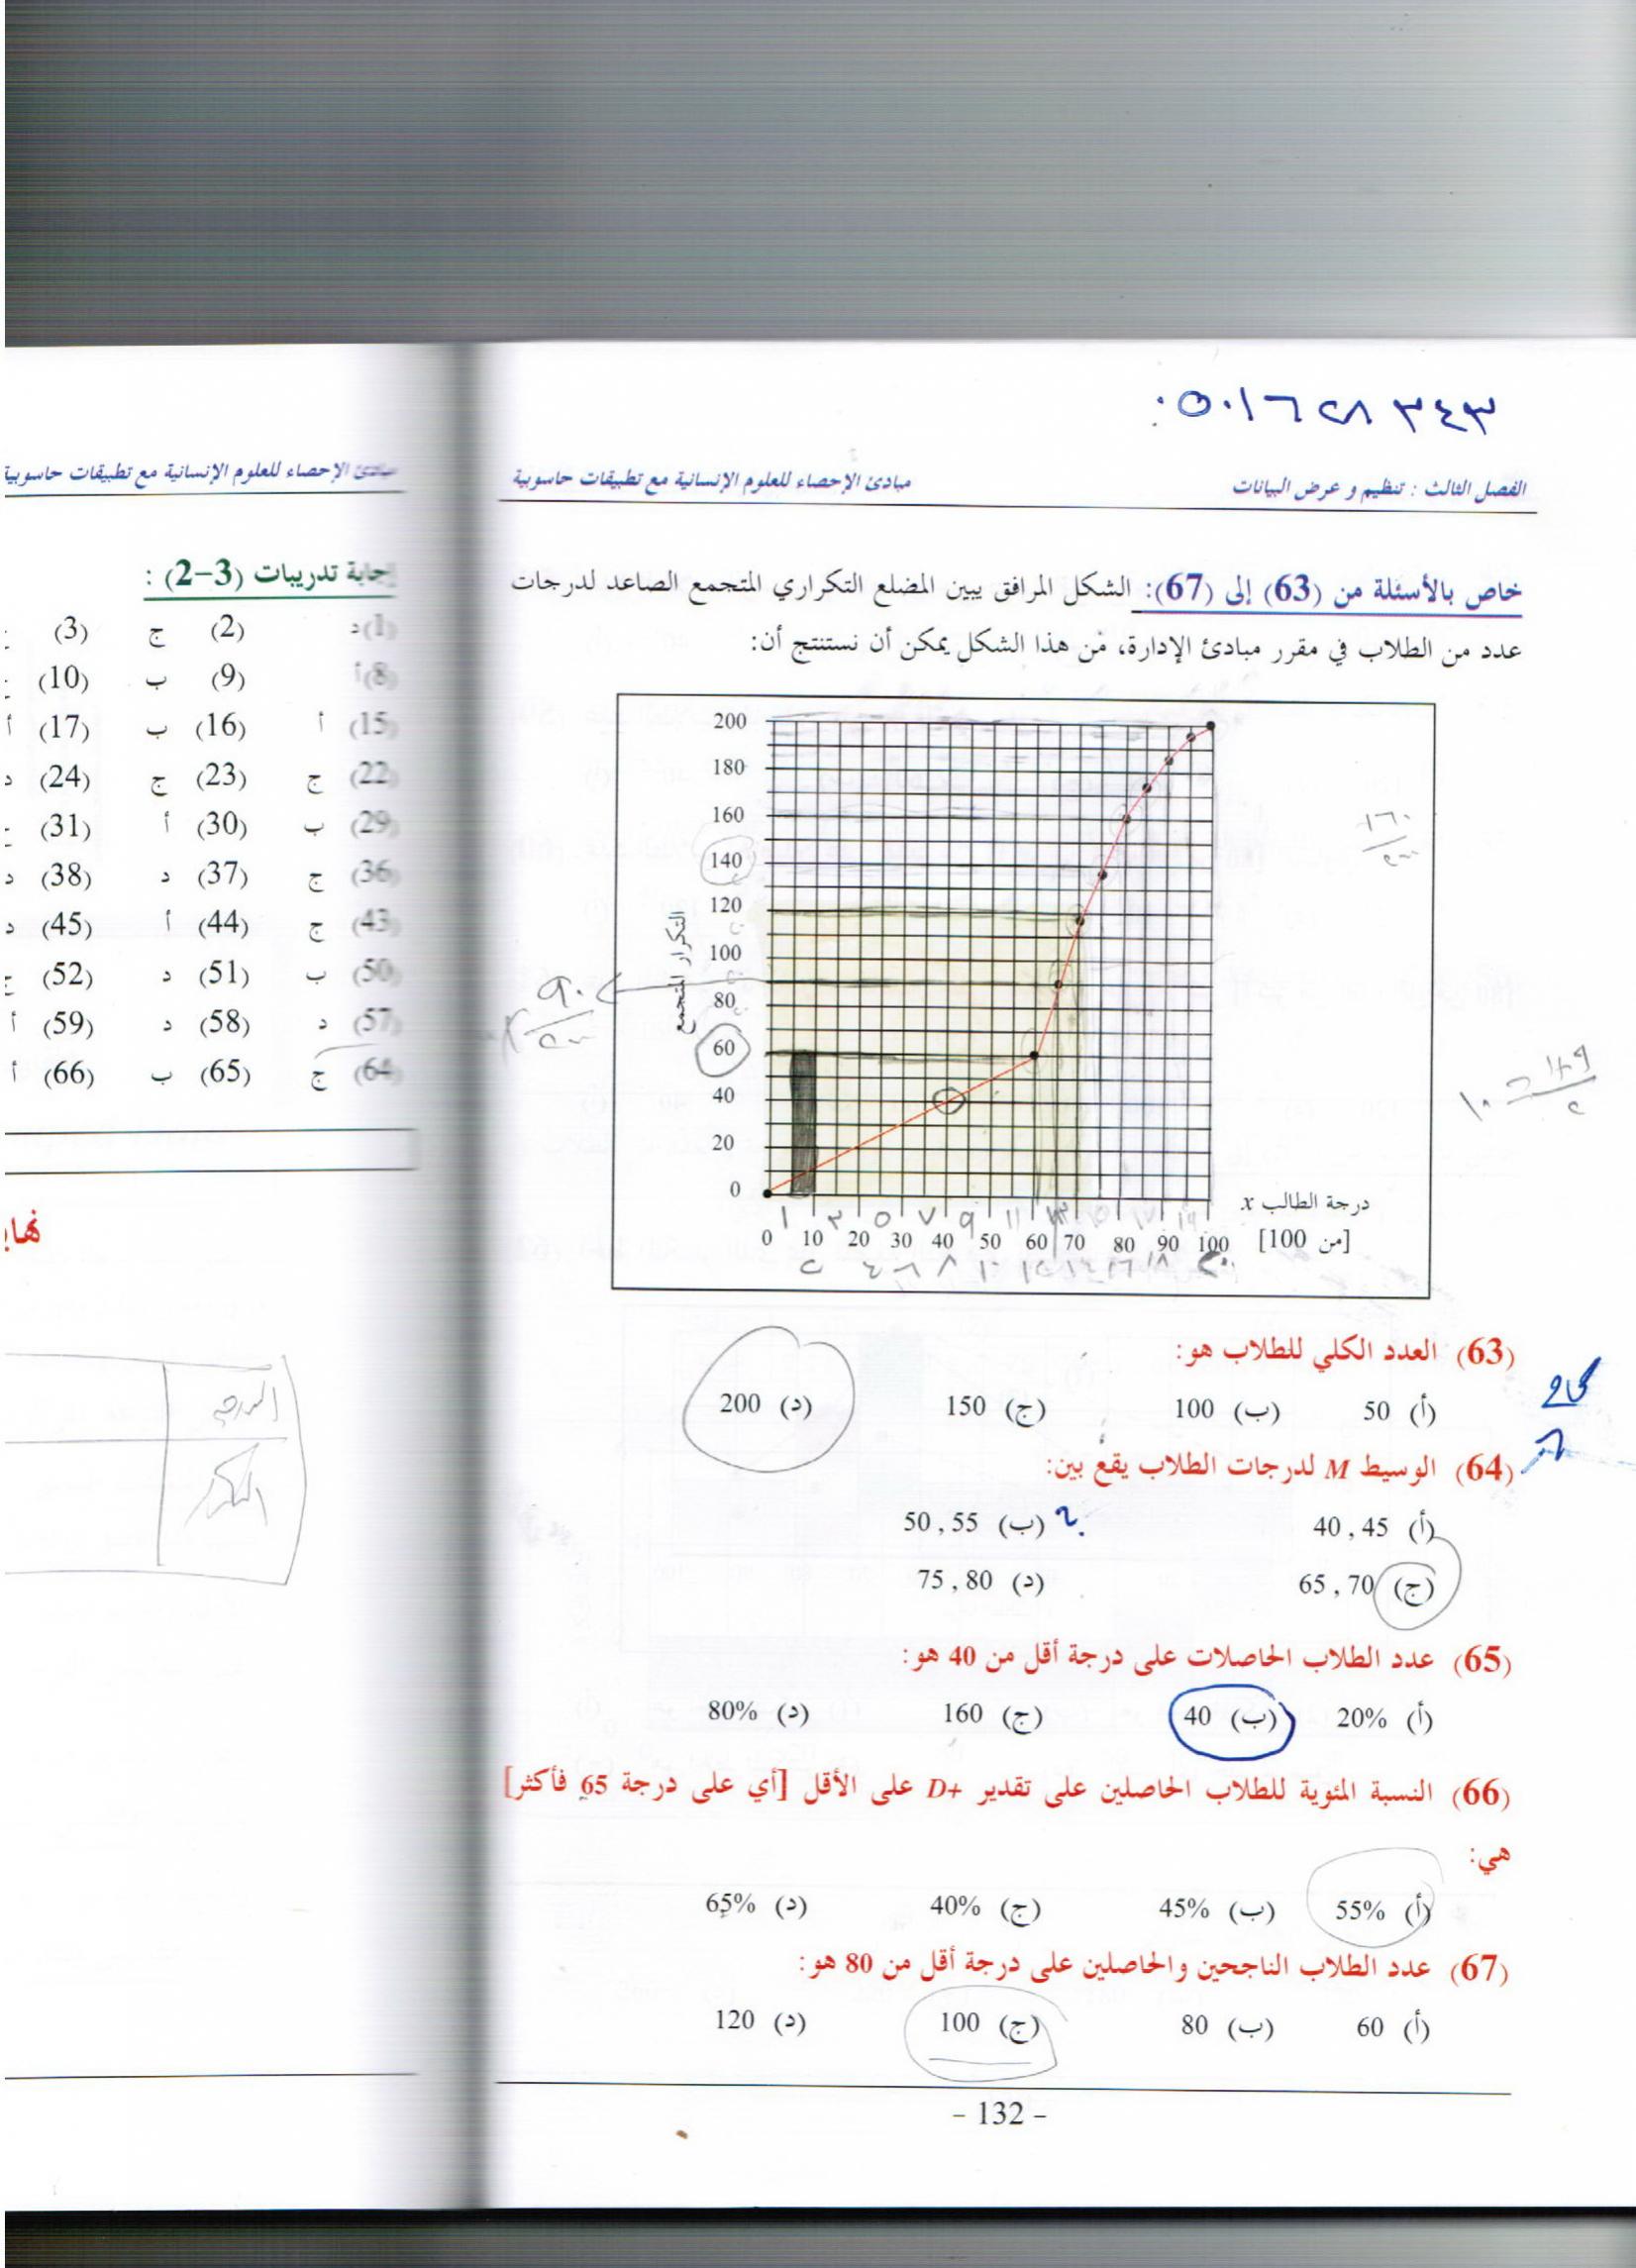 ٠٥٠١٦٢٨٣٤٣
الفصل الثالث : تنظيم و عرض البيانات مبادئ الإحصاء للعلوم الإنسانية مع تطبيقات حاسوبية
خاص بالأسئلة من (63) إلى (67): الشكل المرافق يبين المضلع التكراري المتجمع الصاعد لدرجات
عدد من الطلاب في مقرر مبادئ الإدارة، من هذا الشكل يمكن أن نستنتج أن:
200
180
160
140
120
100
80
60
40
20
0
التكرار المتجمع
0 10 20 30 40 50 60 70 80 90 100
درجة الطالب x
[من 100]
(63) العدد الكلي للطلاب هو:
(أ) 50 (ب) 100 (ج) 150 (د) 200
(64) الوسيط M لدرجات الطلاب يقع بين:
(أ) 40 , 45 (ب) 50 , 55
(ج) 65 , 70 (د) 75 , 80
(65) عدد الطلاب الحاصلات على درجة أقل من 40 هو:
(أ) 20% (ب) 40 (ج) 160 (د) 80%
(66) النسبة المئوية للطلاب الحاصلين على تقدير D+ على الأقل [أي على درجة 65 فأكثر]
هي:
(أ) 55% (ب) 45% (ج) 40% (د) 65%
(67) عدد الطلاب الناجحين والحاصلين على درجة أقل من 80 هو:
(أ) 60 (ب) 80 (ج) 100 (د) 120
- 132 -
مبادئ الإحصاء للعلوم الإنسانية مع تطبيقات حاسوبية
إجابة تدريبات (3-2) :
(1) د (2) ج (3)
(8) أ (9) ب (10)
(15) أ (16) ب (17) أ
(22) ج (23) ج (24) د
(29) ب (30) أ (31)
(36) ج (37) د (38) د
(43) ج (44) أ (45) د
(50) ب (51) د (52) ج
(57) د (58) د (59) أ
(64) ج (65) ب (66) أ